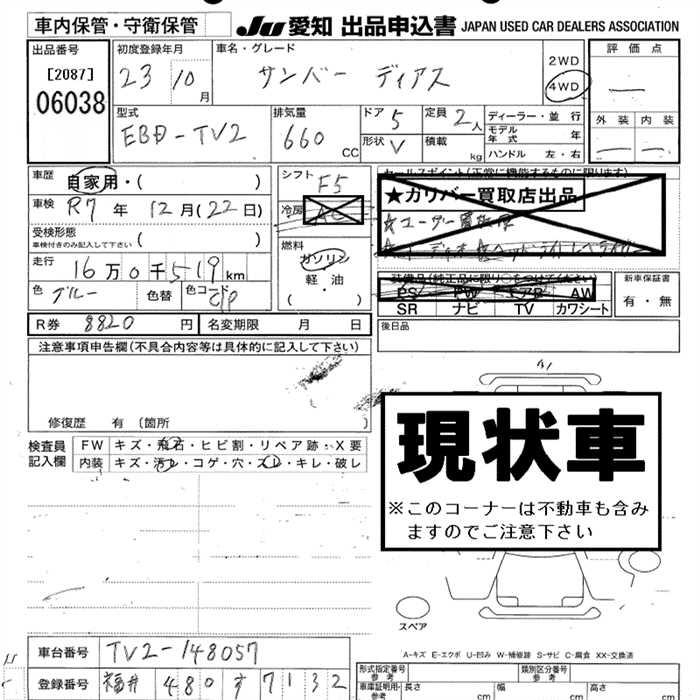 車内保管・守衛保管
JU 愛知 出品申込書 JAPAN USED CAR DEALERS ASSOCIATION
出品番号
[2087]
06038
初度登録年月
23 10月
車名・グレード
サンバー ディアス
2WD
4WD
評価点
外装 内装
型式
EBD-TV2
排気量
660 CC
ドア 5
形状 V
定員 2人
積載 kg
ディーラー・並行
モデル年式 年
ハンドル 左・右
車歴 自家用・( )
車検 R7年 12月(22日)
受検形態
車検付きのみ記入して下さい ( )
走行 16万0千519km
色 ブルー 色替 色コード
シフト F5
冷房 AC
燃料
ガソリン
軽油
( ・ )
セールスポイント(正常に機能するものに限ります)
★カリバー買取店出品
装備品(純正品に限り○をつけて下さい)
PS PW エアB AW
SR ナビ TV カワシート
新車保証書
有・無
R券 8820円 名変期限 月 日
後日品
注意事項申告欄(不具合内容等は具体的に記入して下さい)
修復歴 有 (箇所
検査員記入欄
FW キズ・飛石・ヒビ割・リペア跡・X要
内装 キズ・汚レ・コゲ・穴・スレ・キレ・破レ
現状車
※このコーナーは不動車も含み
ますのでご注意下さい
スペア
A-キズ E-エクボ U-凹み W-補修跡 S-サビ C-腐食 XX-交換済
車台番号 TV2-148057
登録番号 福井 480 す 7132
形式指定番号 参考
類別区分番号 参考
車庫証明用・参考 長さ cm 幅 cm 高さ cm